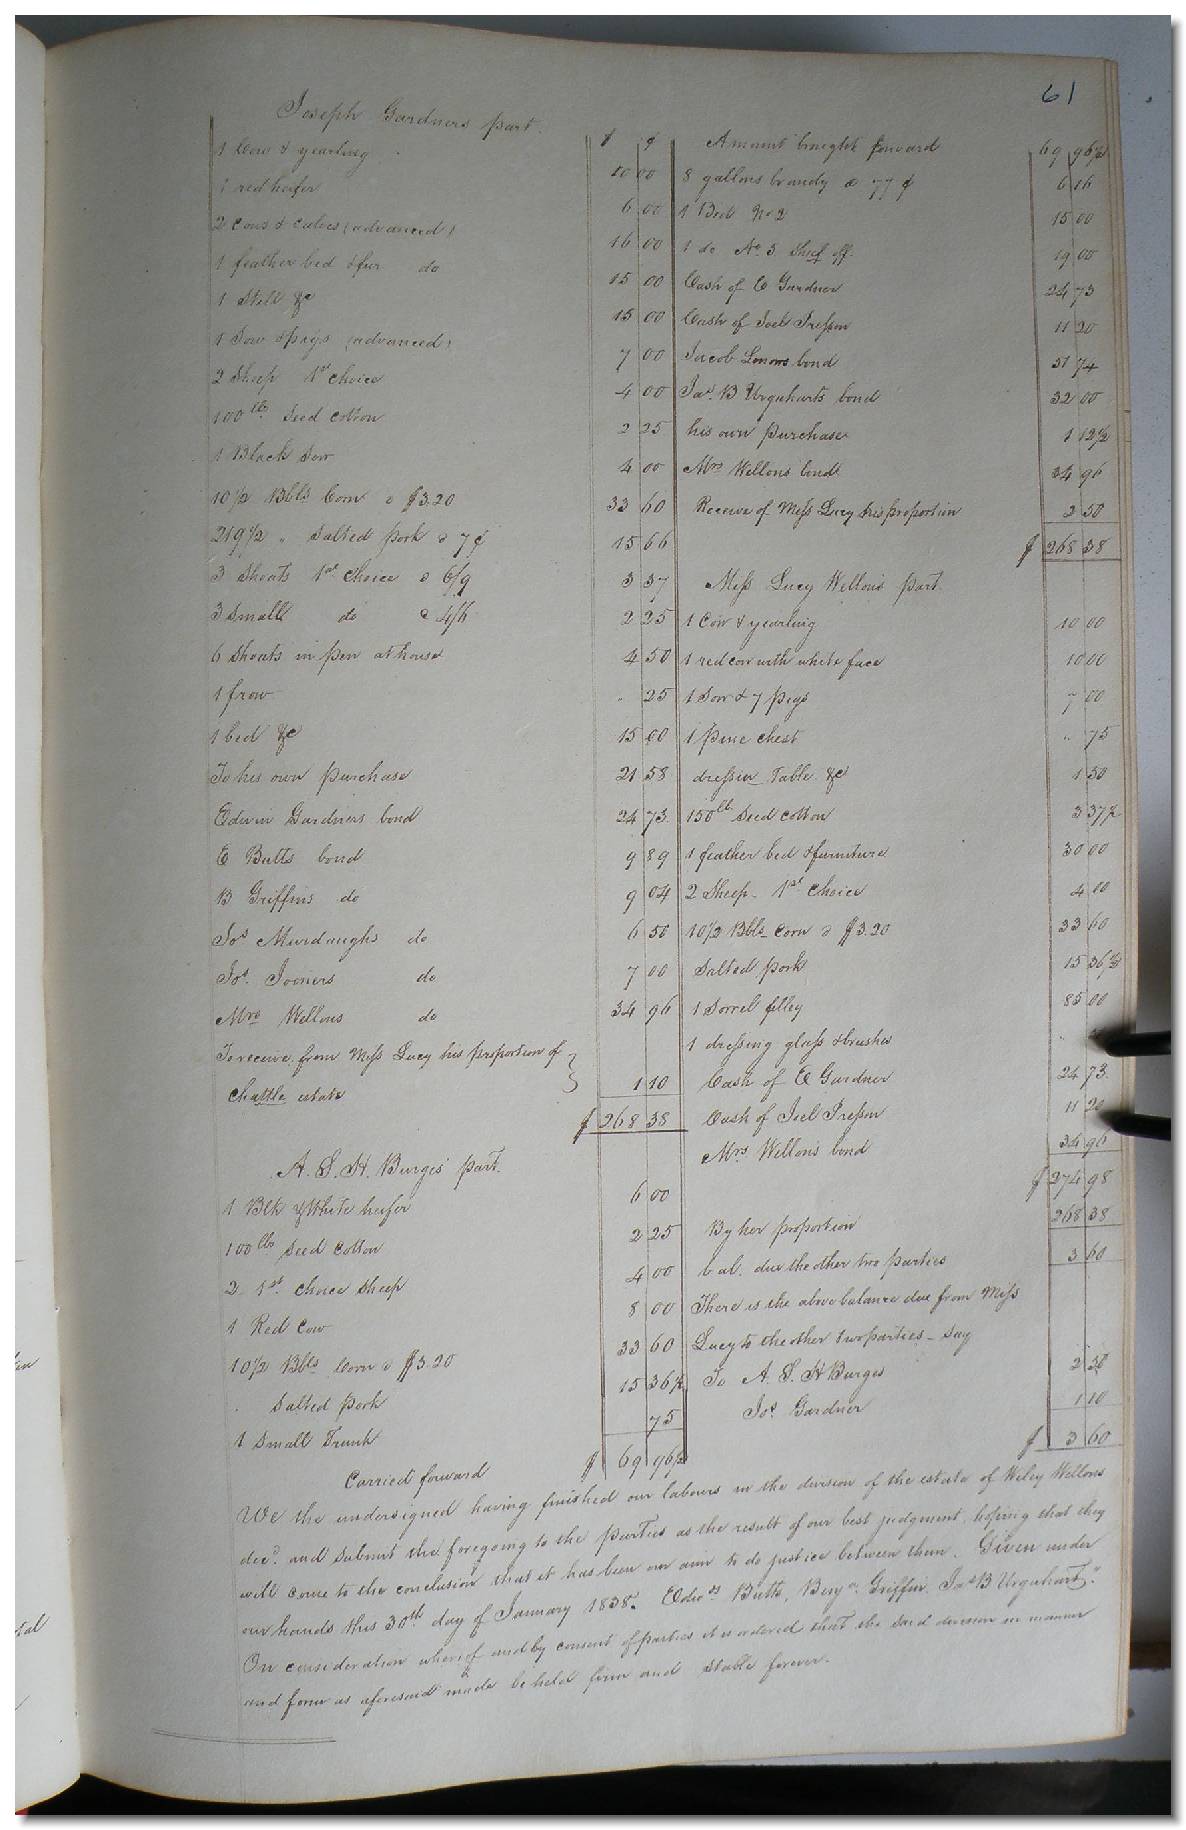 61
Joseph Gardners part.
$ ¢
1 Cow & yearling 10 00
1 red heifer 6 00
2 cows & calves (advanced) 16 00
1 feather bed & fur do 15 00
1 Still &c 15 00
1 Sow & pigs (advanced) 7 00
2 Sheep 1st choice 4 00
100 lbs. Seed Cotton 2 25
1 Black Sow 4 00
10 1/2 Bbls Corn @ $3.20 33 60
219 1/2 " Salted pork @ 7¢ 15 66
3 Shoats 1st Choice @ 6/9 3 37
3 Small do @ 4/6 2 25
6 Shoats in pen at house 4 50
1 frow " 25
1 bed &c 15 00
To his own purchase 21 58
Edwin Gardners bond 24 73
E Butts bond 9 89
B Griffins do 9 04
Jos Murdaughs do 6 50
Jos. Jooners do 7 00
Mrs Wellons do 34 96
To receive from Miss Lucy his proportion of
Chattle estate 1 10
$ 268 38
A. S. H. Burges' part.
1 Blk & White heifer 6 00
100 lbs Seed Cotton 2 25
2 1st. choice Sheep 4 00
1 Red Cow 8 00
10 1/2 Bbls Corn @ $3.20 33 60
Salted pork 15 36 1/2
1 Small Trunk 75
Carried forward $ 69 96 1/2
Amount brought forward 69 96 1/2
8 gallons brandy @ 77 ¢ 6 16
1 Bed No 2 15 00
1 do No. 3 off 19 00
Cash of E Gardner 24 73
Cash of Joel Presson 11 20
Jacob bond 51 74
Jas. B Urquharts bond 32 00
his own purchase 1 12 1/2
Mrs Wellons bond 34 96
Receive of Miss Lucy his proportion 2 50
$ 268 38
Miss Lucy Wellons part.
1 Cow & yearling 10 00
1 red cow with white face 10 00
1 Sow & 7 pigs 7 00
1 pine chest " 75
dressin Table &c 1 50
150 lb. Seed cotton 3 37 1/2
1 feather bed & furniture 30 00
2 Sheep 1st Choice 4 00
10 1/2 Bbls Corn @ $3.20 33 60
Salted pork 15 36 1/2
1 Sorrel filley 85 00
1 dressing glass & brushes
Cash of E Gardner 24 73
Cash of Joel Presson 11 20
Mrs. Wellons bond 34 96
$ 274 98
By her proportion 268 38
bal. due the other two parties 3 60
There is the above balance due from Miss
Lucy to the other two parties - Say
To A. S. H Burges 2 50
Jos. Gardner 1 10
$ 3 60
We the undersigned having finished our labours in the division of the estate of Wiley Wellons
decd. and submit the foregoing to the parties as the result of our best judgment, hoping that they
will come to the conclusion that it has been our aim to do justice between them. Given under
our hands this 30th day of January 1838. Edwd Butts, Benjn. Griffin, Jas B Urquhart."
On consideration whereof and by consent of parties it is ordered that the said division in manner
and form as aforesaid made be held firm and stable forever.